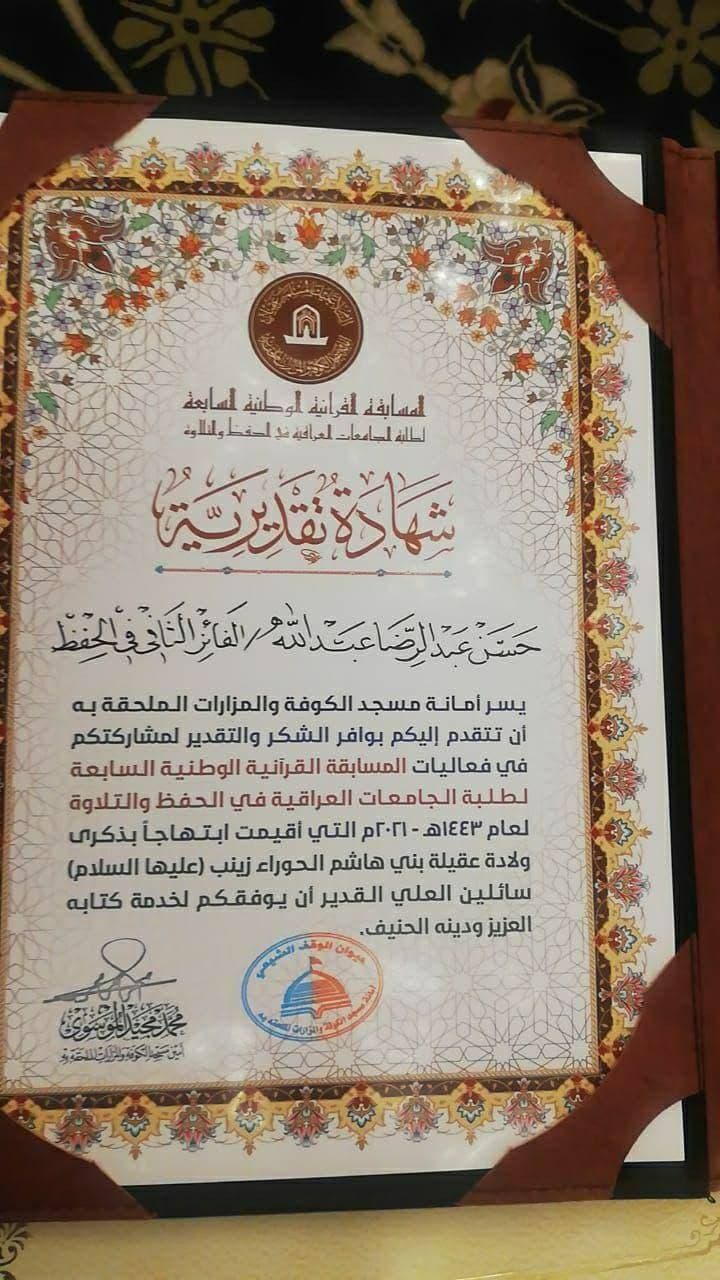 المسابقة القرآنية الوطنية السابعة
لطلبة الجامعات العراقية في الحفظ والتلاوة
شَهَادَة تَقْدِيرِيَّة
حَسَن عَبد الرِّضَا عَبد اللّٰه / الفَائِز الثَّاني في الحِفْظ
يسر أمانة مسجد الكوفة والمزارات الملحقة به
أن تتقدم إليكم بوافر الشكر والتقدير لمشاركتكم
في فعاليات المسابقة القرآنية الوطنية السابعة
لطلبة الجامعات العراقية في الحفظ والتلاوة
لعام ١٤٤٣هـ - ٢٠٢١م التي أقيمت ابتهاجاً بذكرى
ولادة عقيلة بني هاشم الحوراء زينب (عليها السلام)
سائلين العلي القدير أن يوفقكم لخدمة كتابه
العزيز ودينه الحنيف.
ديوان الوقف الشيعي
امانة مسجد الكوفة والمزارات الملحقة به
محمد مجيد الموسوي
أمين مسجد الكوفة والمزارات الملحقة به